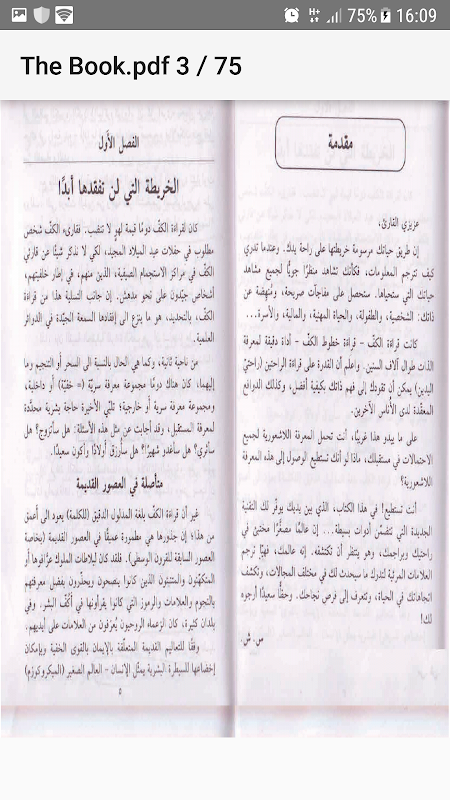 75% 16:09
The Book.pdf 3 / 75
مقدمة
عزيزي القارئ،
إن طريق حياتك مرسومة خريطتها على راحة يدك. وعندما تدري
كيف تترجم المعلومات، فكأنك تشاهد منظرًا جويًّا لجميع مشاهد
حياتك التي ستحياها. ستحصل على مفاجآت صريحة، ومُنهضة عن
ذاتك: الشخصية، والطفولة، والحياة المهنية، والمالية، والأسرة...
كانت قراءة الكف – قراءة خطوط الكف – أداة دقيقة لمعرفة
الذات طوال آلاف السنين. واعلم أن القدرة على قراءة الراحتين (راحتيّ
اليدين) يمكن أن تقودك إلى فهم ذاتك بكيفية أفضل، وكذلك الدوافع
المعقّدة لدى الأُناس الآخرين.
على ما يبدو هذا غريبًا، أنت تحمل المعرفة اللاشعورية لجميع
الاحتمالات في مستقبلك، ماذا لو أنك تستطيع الوصول إلى هذه المعرفة
اللاشعورية؟
أنت تستطيع! في هذا الكتاب، الذي بين يديك يوفّر لك التقنية
الجديدة التي تتضمّن أدوات بسيطة... إن عالمًا مصغّرًا مختبئ في
راحتيك وبراجمك، وهو ينتظر أن تكتشفه. إنه عالمك، فهيّا ترجم
العلامات المرئية لتدرك ما سيحدث لك في مختلف المجالات، وتكشف
اتجاهاتك في الحياة، وتتعرف إلى فرص نجاحك. وحظًّا سعيدًا أرجوه
لك!
س. ش.
الفصل الأول
الخريطة التي لن تفقدها أبدًا!
كان لقراءة الكفّ دومًا قيمة لهوٍ لا تنضب. فقارىء الكفّ شخص
مطلوب في حفلات عيد الميلاد المجيد، لكي لا نذكر شيئًا عن قارئي
الكفّ في مراكز الاستجمام الصيفية، الذين منهم، في إطار خلفيتهم،
أشخاص جيّدون على نحو مدهش. إن جانب التسلية هذا من قراءة
الكفّ، بالتحديد، هو ما ينزع إلى إفقادها السمعة الجيّدة في الدوائر
العلمية.
من ناحية ثانية، وكما هي الحال بالنسبة الى السحر أو التنجيم وما
إليهما، كان هناك دومًا مجموعة معرفة سريّة (= خفيّة) أو داخلية،
ومجموعة معرفة سرية أو خارجية؛ تلبّي الأخيرة حاجة بشرية محدّدة
لمعرفة المستقبل، وقد أجابت عن مثل هذه الأسئلة: هل سأتزوج؟ هل
سأثرى؟ هل سأغدو شهيرًا؟ هل سأرزق أولادًا وأكون سعيدًا.
متأصلة في العصور القديمة
غير أن قراءة الكفّ بلغة المدلول الدقيق (للكلمة) يعود الى أعمق
من هذا؛ إن جذورها هي مطمورة عميقًا في العصور القديمة (بخاصة
العصور السابقة للقرون الوسطى). فلقد كان لبلاطات الملوك عرّافوها أو
المتكهّنون والمتنبئون الذين كانوا ينصحون ويحذّرون بفضل معرفتهم
بالنجوم والعلامات والرموز التي كانوا يقرأونها في أكُفّ البشر. وفي
بلدان كثيرة، كان الزعماء الروحيون يُعرَفون من العلامات على أيديهم.
وفقًا للتعاليم القديمة المتعلّقة بالإيمان بالقوى الخفية وبإمكان
إخضاعها للسيطرة البشرية يمثّل الإنسان – العالم الصغير (الميكروكوزم)
٥